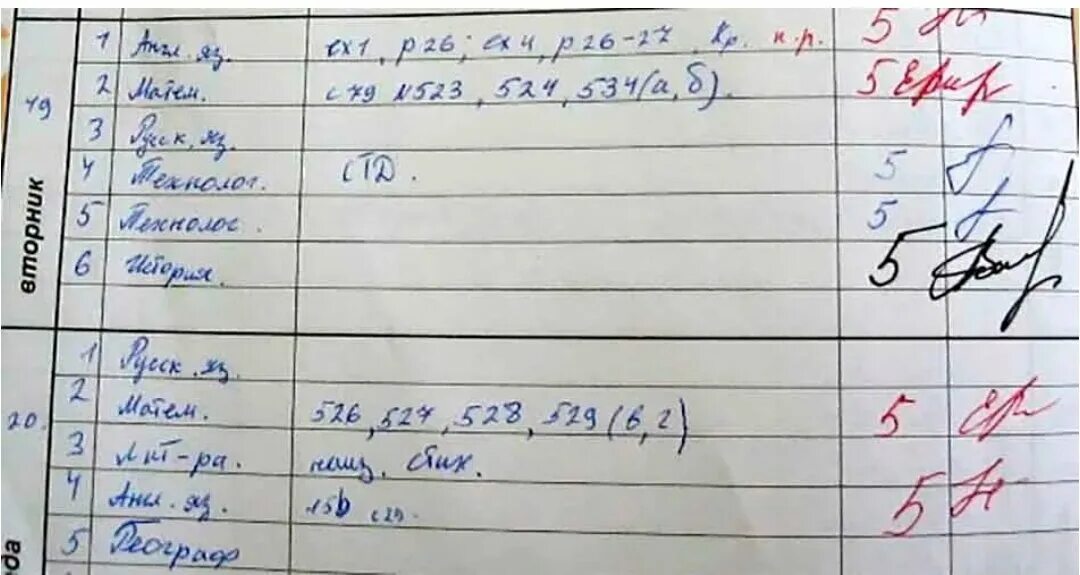 19
вторник
1 Англ. яз. ex1, p26; ex4, p26-27 Кр. н.р. 5
2 Матем. с79 №523, 524, 534(а, б). 5
3 Русск. яз.
4 Технолог. СТД. 5
5 Технолог. 5
6 История. 5
20.
да
1 Русск. яз.
2 Матем. 526, 527, 528, 529 (в, г) 5
3 Лит-ра. наиз. стих.
4 Англ. яз. 15b с29. 5
5 Географ